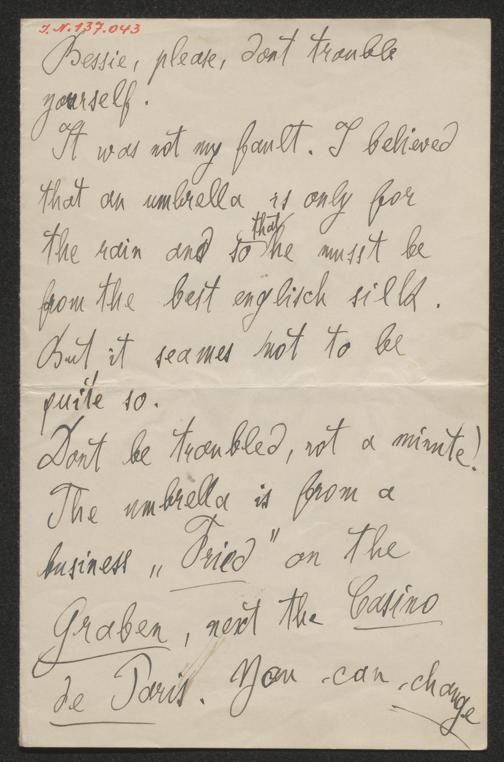 I.N.137.043
Bessie, please, dont trouble
yourself.
It was not my fault. I believed
that an umbrella is only for
the rain and so that he musst be
from the best englisch silk.
But it seames not to be
quite so.
Dont be troubled, not a minute!
The umbrella is from a
business „Fried" on the
Graben, next the Casino
de Paris. You can change